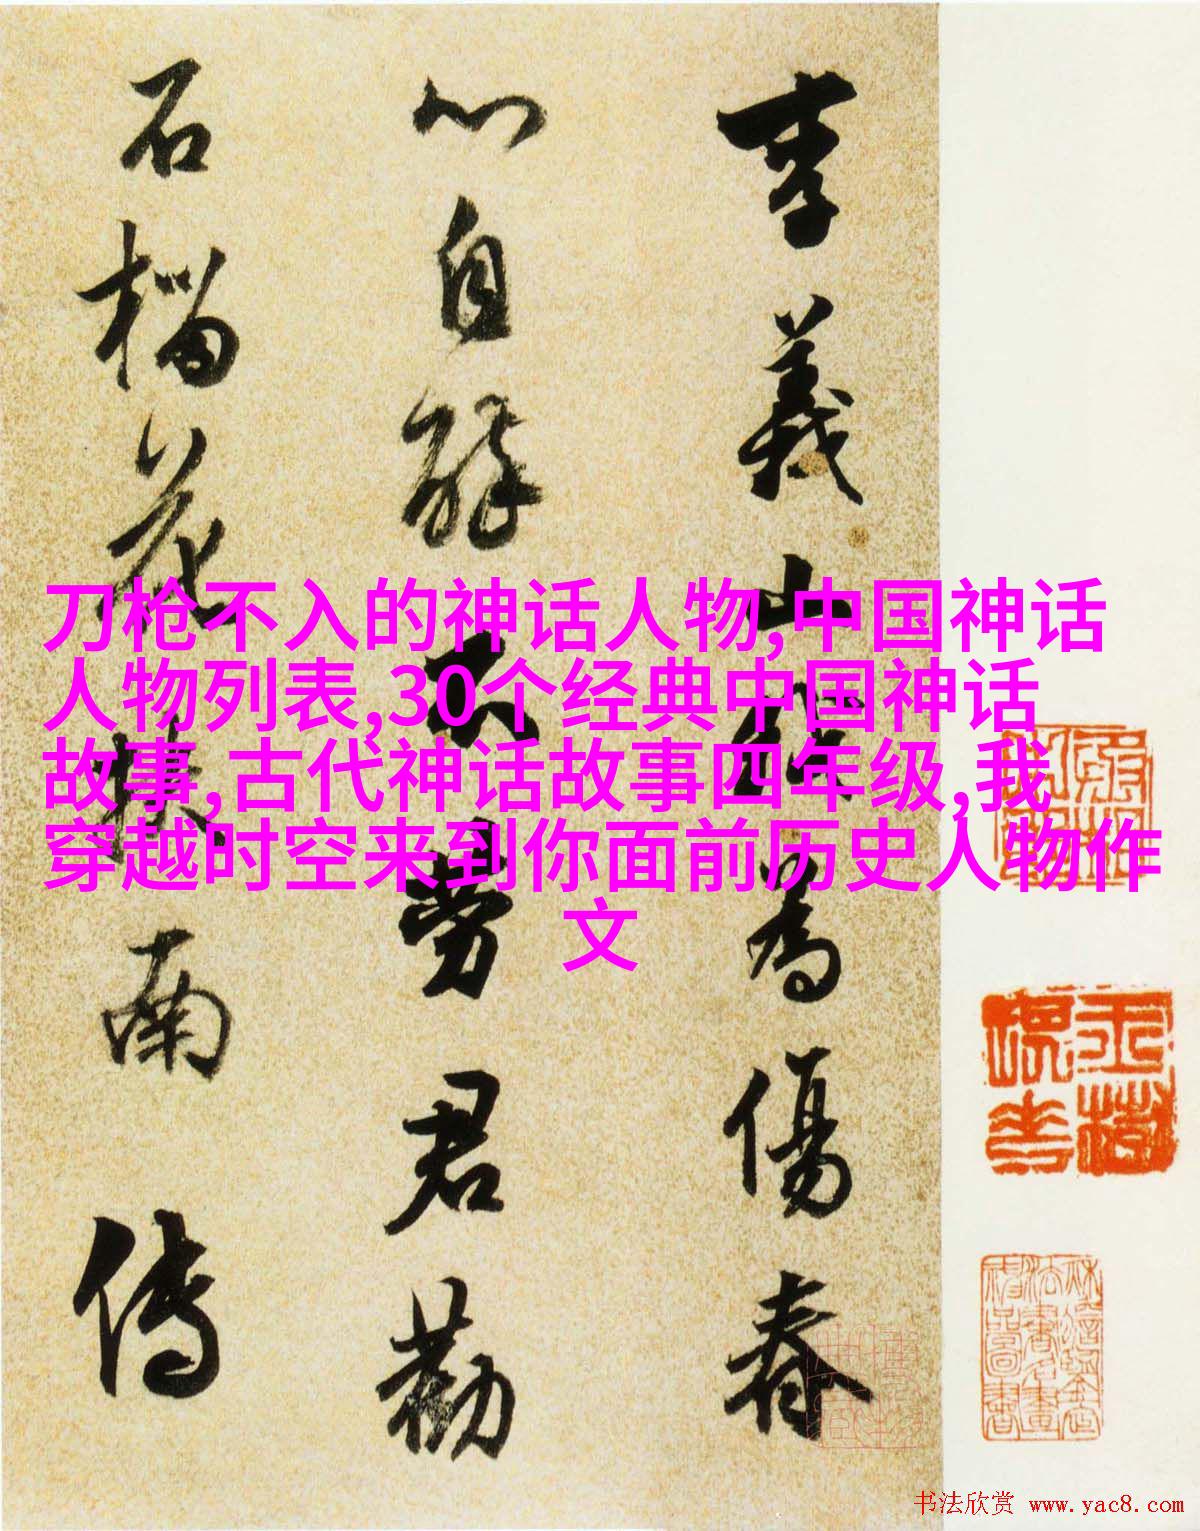 李義山為傷春
心自醉不勞君勸
石榴花南傳
刀枪不入的神话人物,中国神话
人物列表,30个经典中国神话
故事,古代神话故事四年级,我
穿越时空来到你面前历史人物作
文
书法欣赏 www.yac8.com